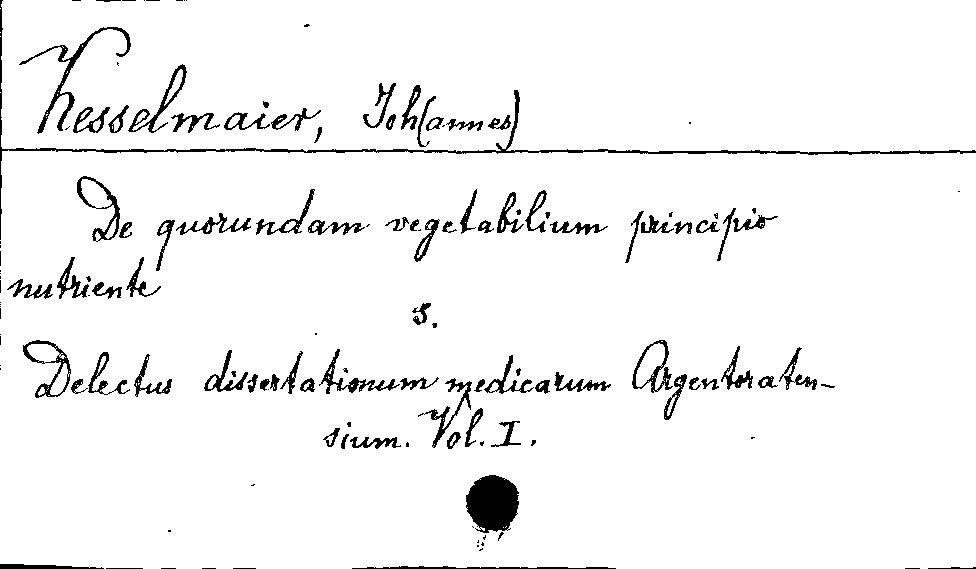 Kesselmaier, Joh(annes)
De quorundam vegetabilium principio
nutriente
s.
Delectus dissertationum medicarum Argentoraten-
sium. Vol. I.